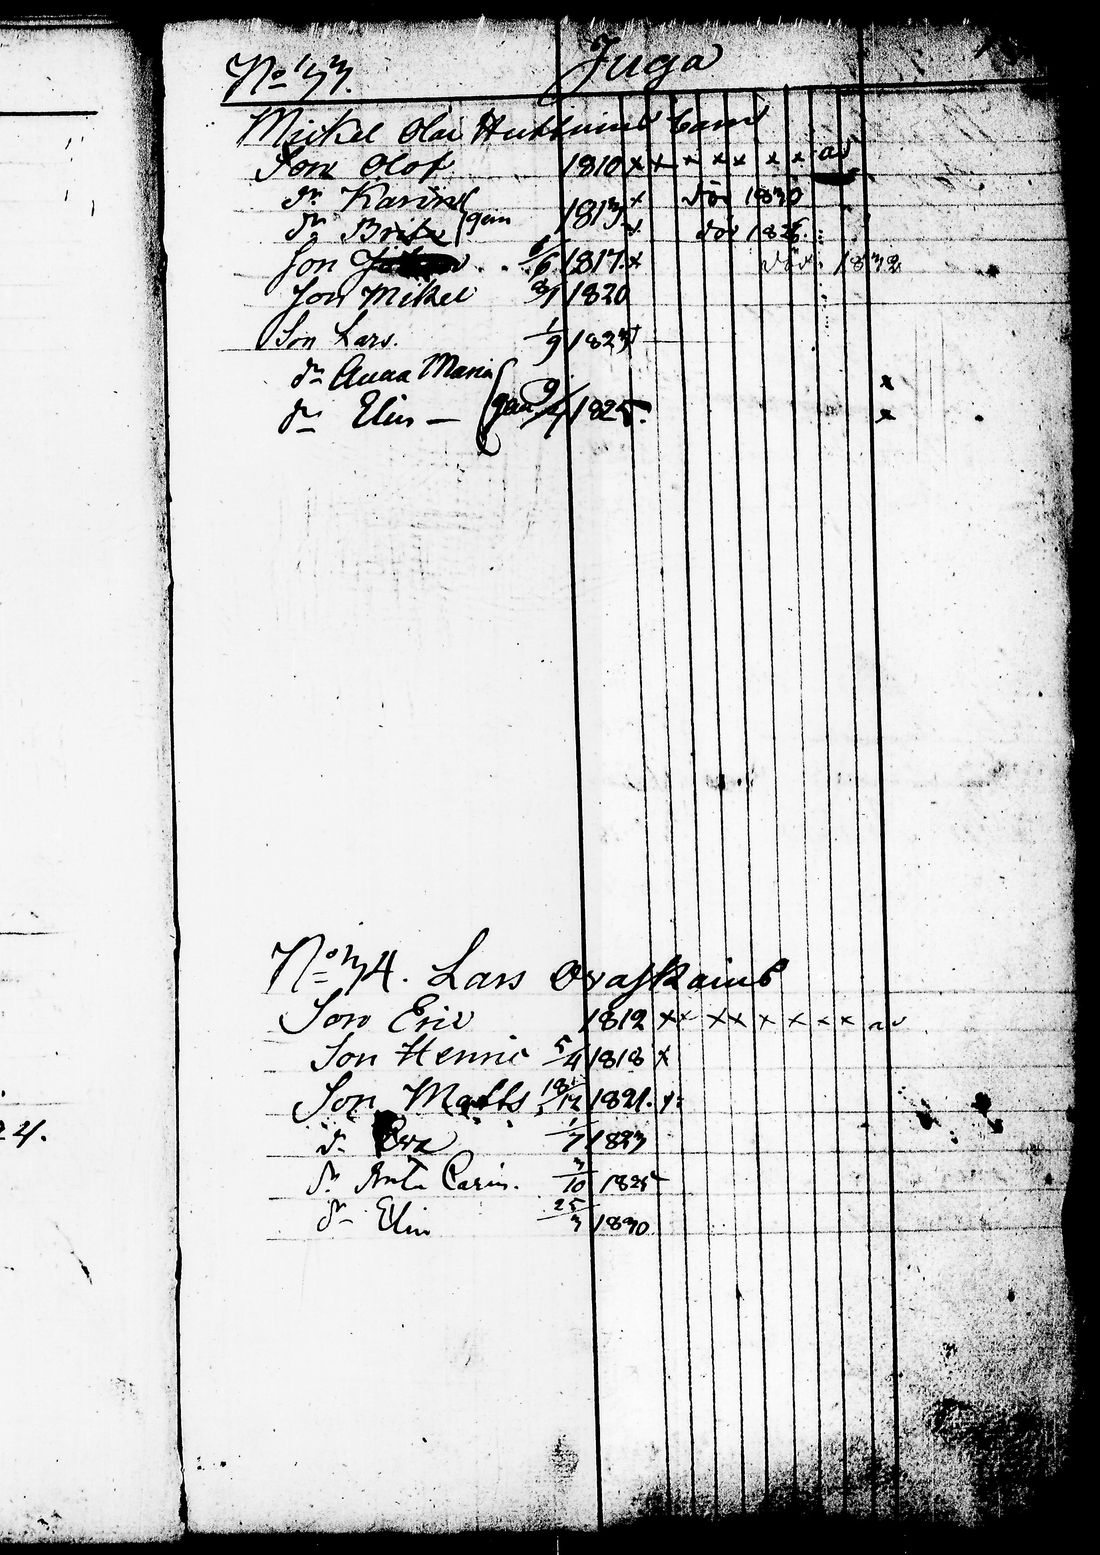 No 33. Juga
Mickel Olai Huttuins barn
Son Olof 1810 x x x x x x x
dr Karin 1813 x död 1830
dr Brita död 1826
Son 6/6 1817. x död 1832
Son Mikel 8/1 1820
Son Lars. 1/9 1823
dr Anna Maria x
dr Elin — 9/4 1825. x
No 34. Lars Oraskains
Son Eric 1812 x x x x x x x x
Son Henric 5/4 1818 x
Son Matts 18/12 1821.
d. Eva 1/7 1823
dr Carin. 3/10 1825
dr Elin 25/3 1830
24.